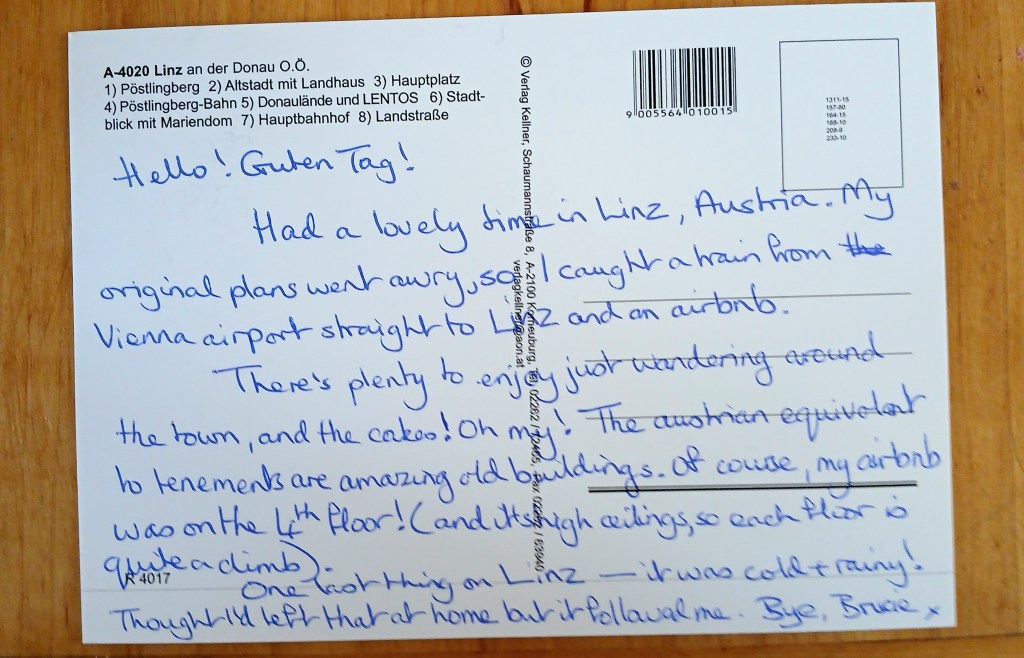 A-4020 Linz an der Donau O.Ö.
1) Pöstlingberg 2) Altstadt mit Landhaus 3) Hauptplatz
4) Pöstlingberg-Bahn 5) Donaulände und LENTOS 6) Stadt-
blick mit Mariendom 7) Hauptbahnhof 8) Landstraße
© Verlag Kellner, Schaumannstraße 8, A-2100 Korneuburg, Tel. 02262 / Fax 02262 / 63940
verlagkellner@aon.at
9 005564 010015
1311-15
157-80
164-15
188-10
208-9
233-10
Hello! Guten Tag!
Had a lovely time in Linz, Austria. My
original plans went awry, so I caught a train from the
Vienna airport straight to Linz and an airbnb.
There's plenty to enjoy just wandering around
the town, and the cakes! Oh my! The austrian equivalent
to tenements are amazing old buildings. Of course, my airbnb
was on the 4th floor! (and it's high ceilings, so each floor is
quite a climb).
R 4017
One last thing on Linz — it was cold + rainy!
Thought I'd left that at home but it followed me. Bye, Brucie x